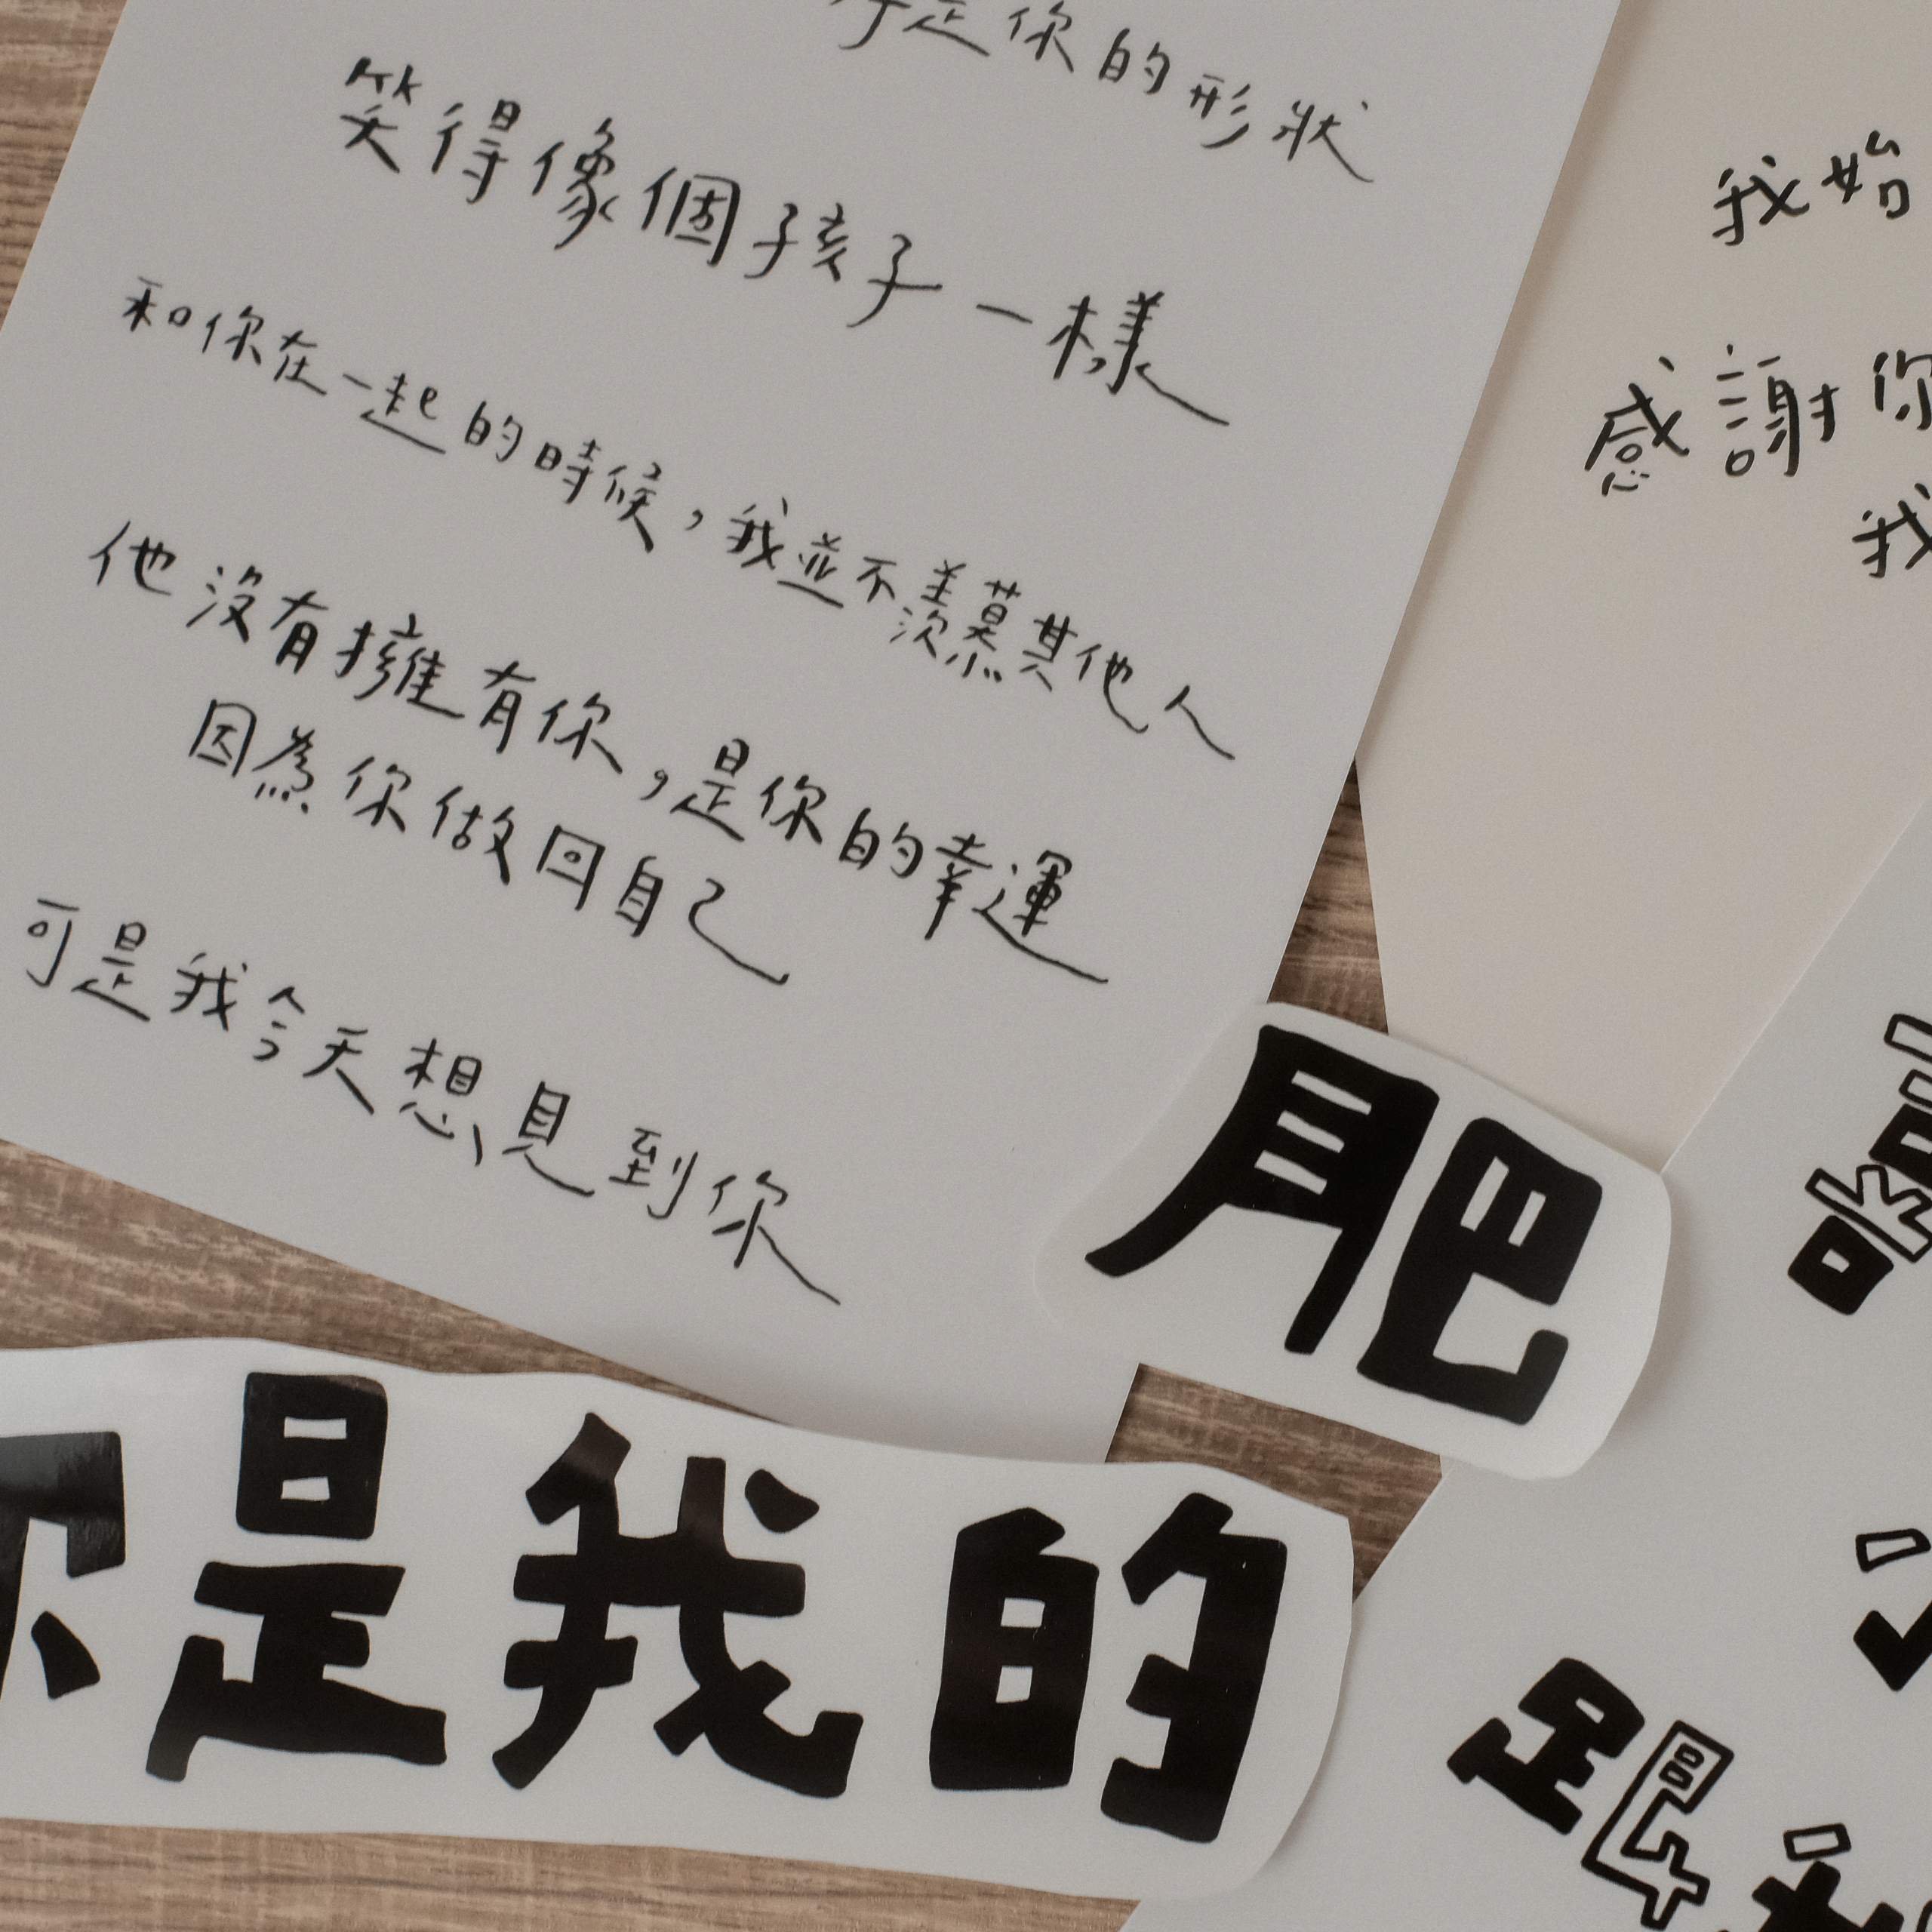 是你的形狀
笑得像個孩子一樣
和你在一起的時候，我並不羨慕其他人
他沒有擁有你，是你的幸運
因為你做回自己
可是我今天想見到你
我始
感謝你
我
肥
你是我的
跟